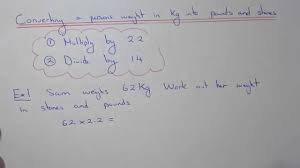 Converting a persons weight in Kg into pounds and stones
① Multiply by 2.2
② Divide by 14
Ex1 Sam weighs 62Kg Work out her weight
in stones and pounds
62 x 2.2 =